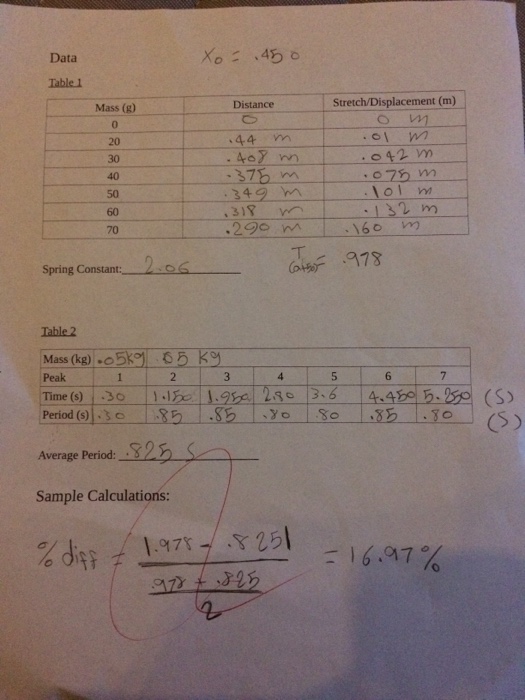 Data X₀ = .450
Table 1
Mass (g) Distance Stretch/Displacement (m)
0 0 0 m
20 .44 m .01 m
30 .408 m .042 m
40 .375 m .075 m
50 .349 m .101 m
60 .318 m .132 m
70 .290 m .160 m
Spring Constant: 2.06 T = .978
Table 2
Mass (kg) .05kg .05 kg
Peak 1 2 3 4 5 6 7
Time (s) .30 1.150 1.950 2.80 3.6 4.450 5.250 (s)
Period (s) .30 .85 .85 .80 .80 .85 .80 (s)
Average Period: .825 s
Sample Calculations:
% diff = |.978 - .825| = 16.97%
.978 + .825
2